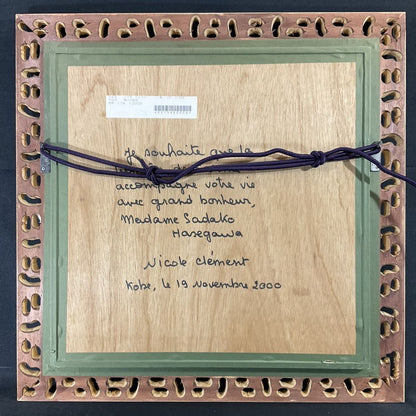 je souhaite que la
accompagne votre vie
avec grand bonheur,
Madame Sadako
Hasegawa
Nicole Clément
Kobe, le 19 Novembre 2000